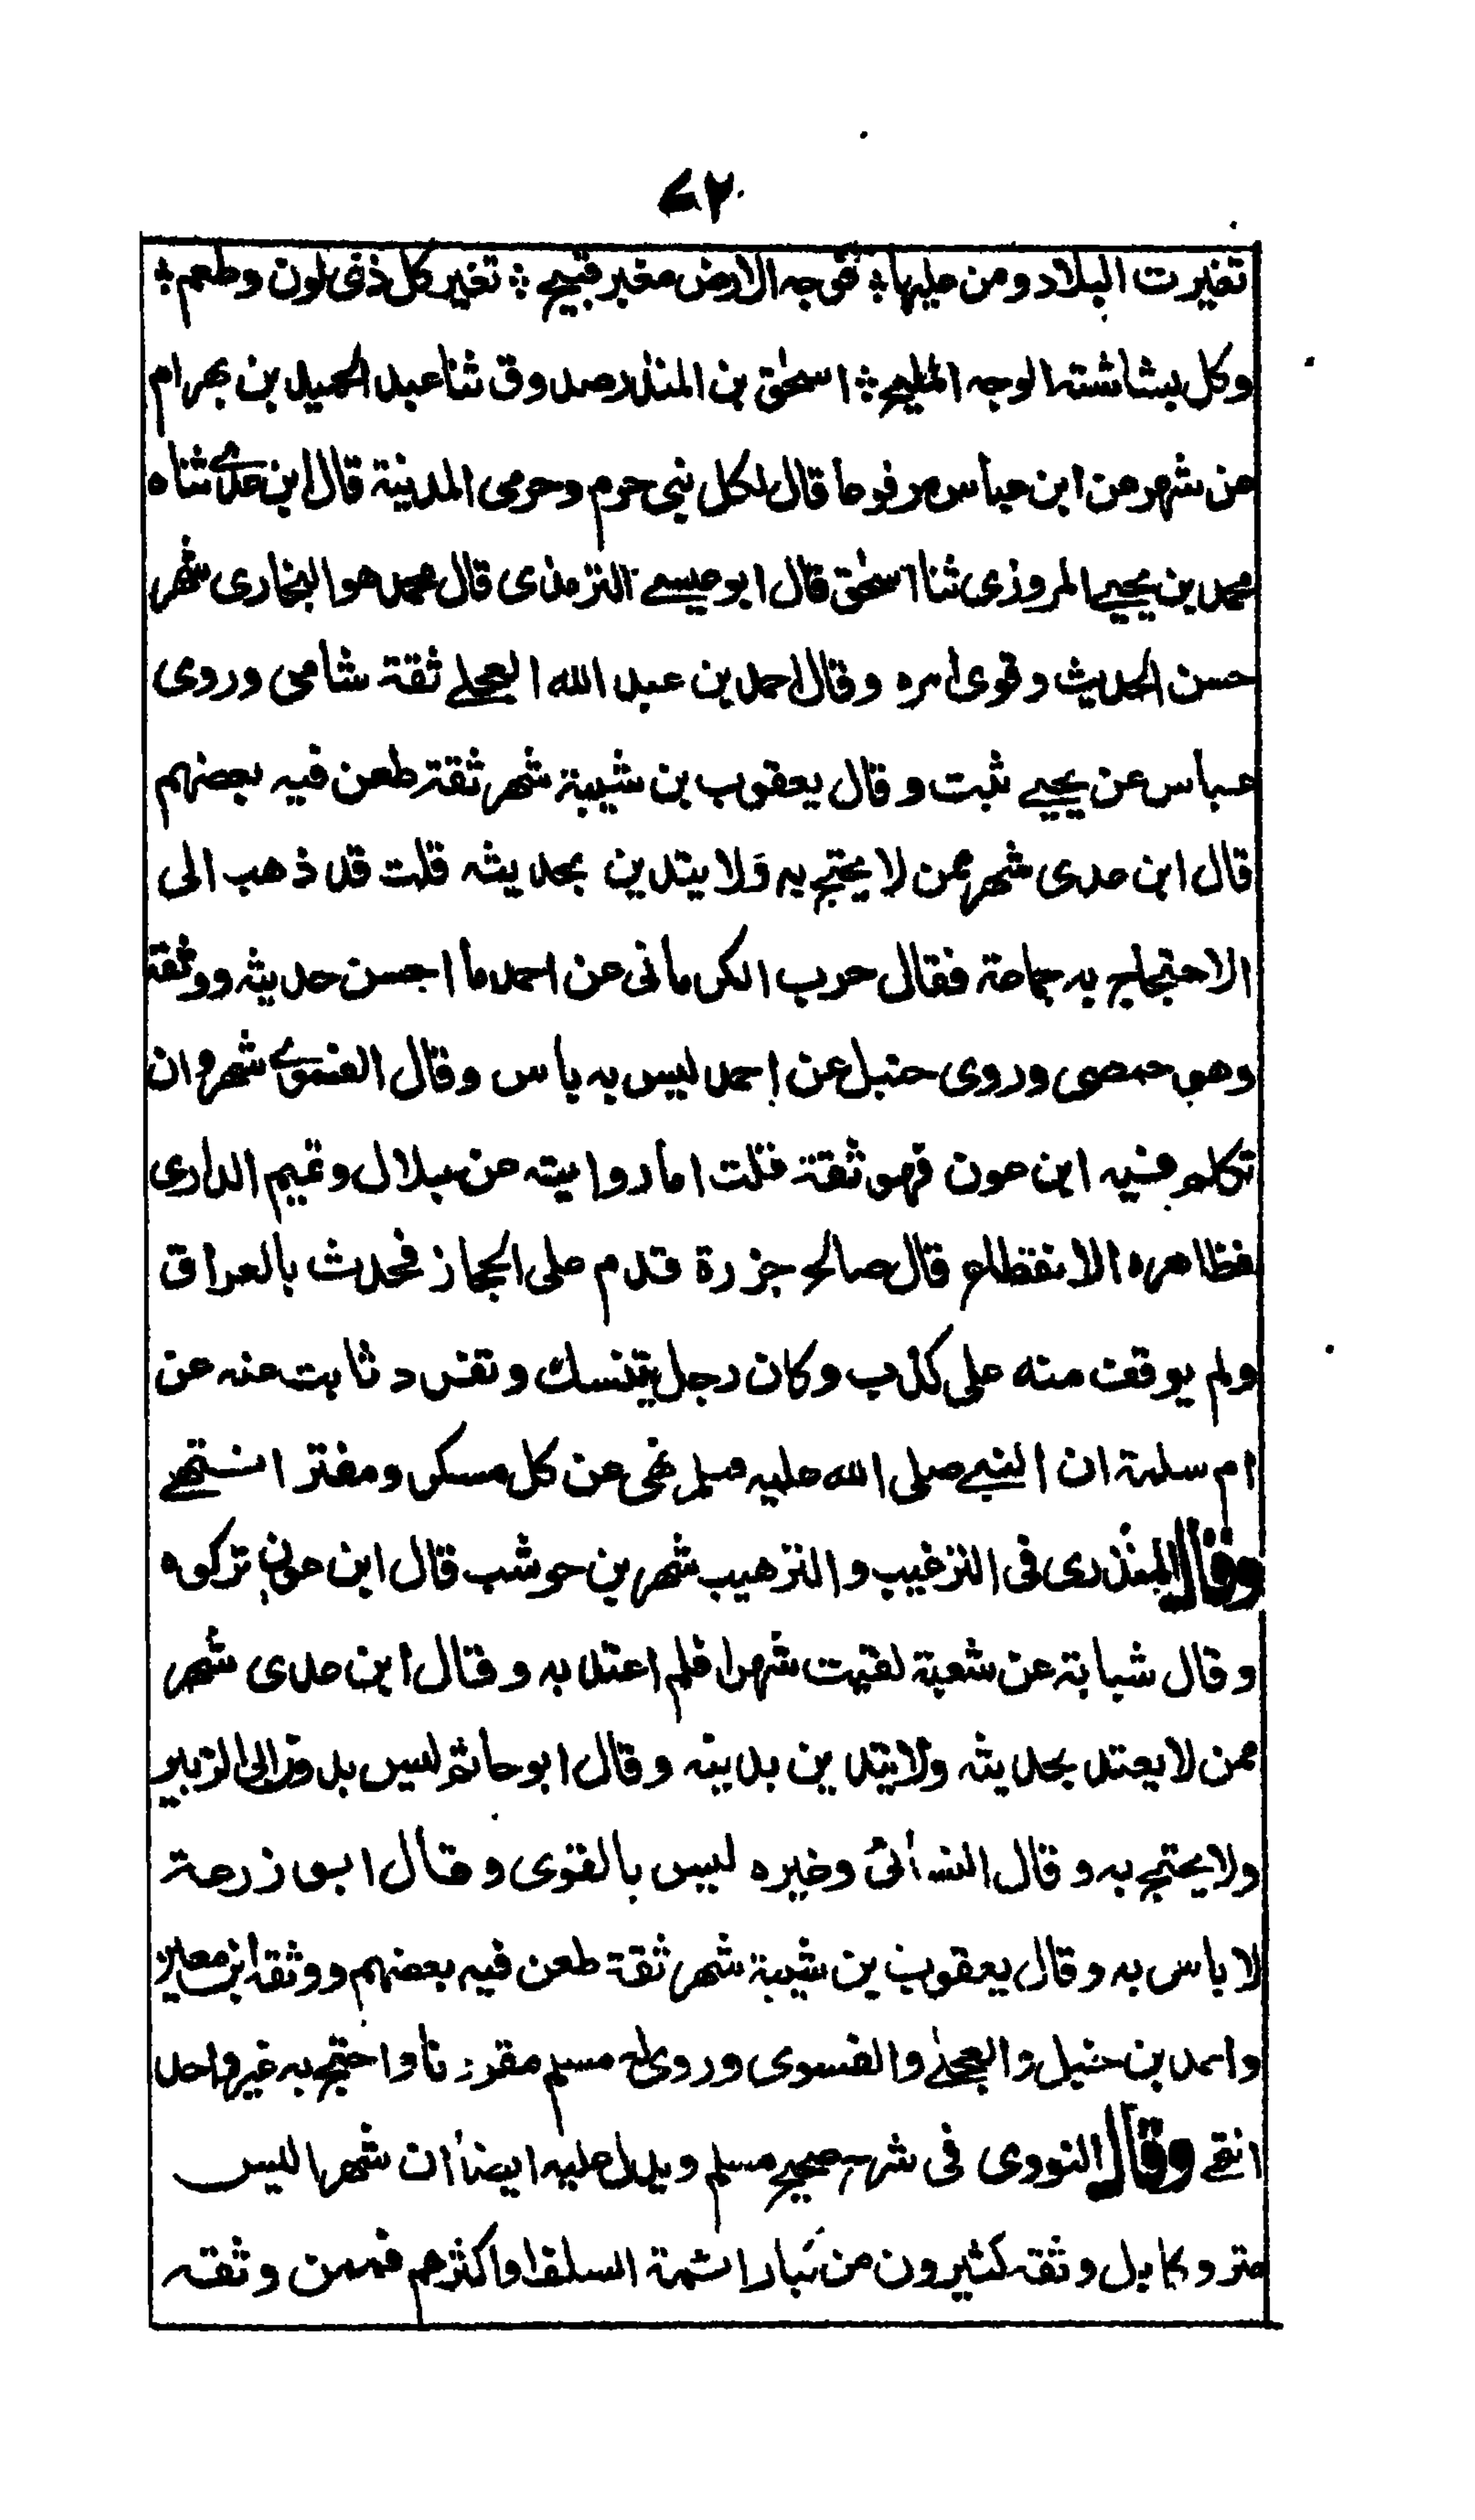 ٤٧
تغيرت البلاد ومن عليها ؛ فوجه الارض مغبر قبيح ؛ تغير كل ذى لون وطعم ؛
وكل بشاشته الوجه المليح ؛ اسحٰق بن المنذر صدوق ثنا عبد الحميد بن بهرام
عن شهر عن ابن عباس مرفوعا قال لكل نبى حرم وحرمى المدينة قال ابن عدى ثناه
محمد بن يحيى المروزى ثنا اسحٰق قال ابو عيسى الترمذى قال محمد هو البخارى شهر
حسن الحديث وقوى امره وقال احمد بن عبد الله العجلى ثقة شامى وروى
عباس عن يحيى ثبت وقال يعقوب بن شيبة شهر ثقة طعن فيه بعضهم
قال ابن عدى شهر ممن لا يحتج به وَلا يتدين بحديثه قلت قد ذهب الى
الاحتجاج به جماعة فقال حرب الكرمانى عن احمد ما احسن حديثه ووثقه
وهو حمصى وروى حنبل عن احمد ليس به باس وقال الفسوى شهر وان
تكلم فيه ابن عون فهو ثقة قلت اما روايته عن بلال وتميم الدارى
فظاهره الانقطاع قال صالح جزرة قدم على الحجاز فحدث بالعراق
ولم يوقف منه على كذب وكان رجل يتنسك وتفرد ثابت عنه عن
ام سلمة ان النبى صلى الله عليه وسلم نهى عن كل مسكر ومفتر انتهى
وقال المنذرى فى الترغيب والترهيب شهر بن حوشب قال ابن عون تركوه
وقال شبابة عن شعبة لقيت شهرا فلم اعتد به وقال ابن عدى شهر
ممن لا يعتد بحديثه ولا يتدين بدينه وقال ابو حاتم ليس بدون ابى الزبير
ولا يحتج به وقال النسائى وغيره ليس بالقوى وقال ابو زرعة
لا باس به وقال يعقوب بن شيبة شهر ثقة طعن فيه بعضهم ووثقه ابن معين
واحمد بن حنبل والعجلى والفسوى وروى له مسلم مقرونا واحتج به غير واحد
انتهى وقال النووى فى شرح صحيح مسلم ويدل عليه ايضا ان شهرا ليس
متروكا بل وثقه كثيرون من كبار ائمة السلف او اكثرهم فممن وثقه